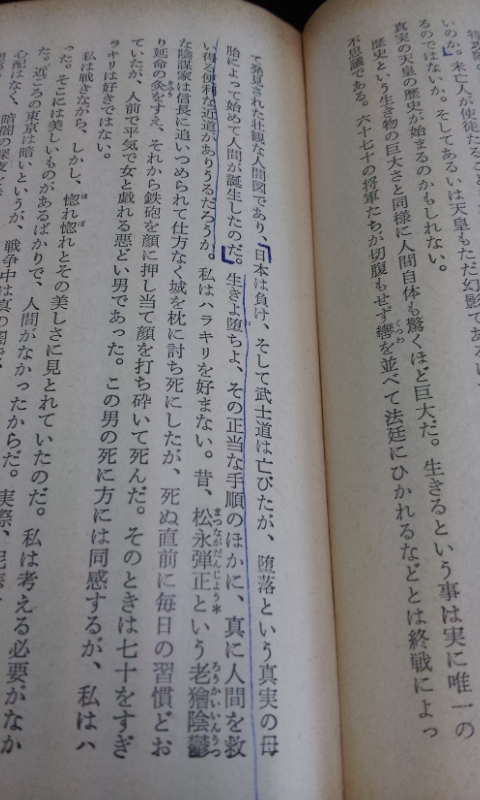 いのか。未亡人が使徒たることも
るのではないか。そしてあるいは天皇もただ幻影であるに
真実の天皇の歴史が始まるのかもしれない。
歴史という生き物の巨大さと同様に人間自体も驚くほど巨大だ。生きるという事は実に唯一の
不思議である。六十七十の将軍たちが切腹もせず轡を並べて法廷にひかれるなどとは終戦によっ
て発見された壮観な人間図であり、日本は負け、そして武士道は亡びたが、堕落という真実の母
胎によって始めて人間が誕生したのだ。生きよ堕ちよ、その正当な手順のほかに、真に人間を救
い得る便利な近道がありうるだろうか。私はハラキリを好まない。昔、松永弾正という老獪陰鬱
な陰謀家は信長に追いつめられて仕方なく城を枕に討ち死にしたが、死ぬ直前に毎日の習慣どお
り延命の灸をすえ、それから鉄砲を顔に押し当て顔を打ち砕いて死んだ。そのときは七十をすぎ
ていたが、人前で平気で女と戯れる悪どい男であった。この男の死に方には同感するが、私はハ
ラキリは好きではない。
私は戦きながら、しかし、惚れ惚れとその美しさに見とれていたのだ。私は考える必要がなか
った。そこには美しいものがあるばかりで、人間がなかったからだ。実際、泥棒
た。近ごろの東京は暗いというが、戦争中は真の闇で
心配はなく、暗闇の深夜を